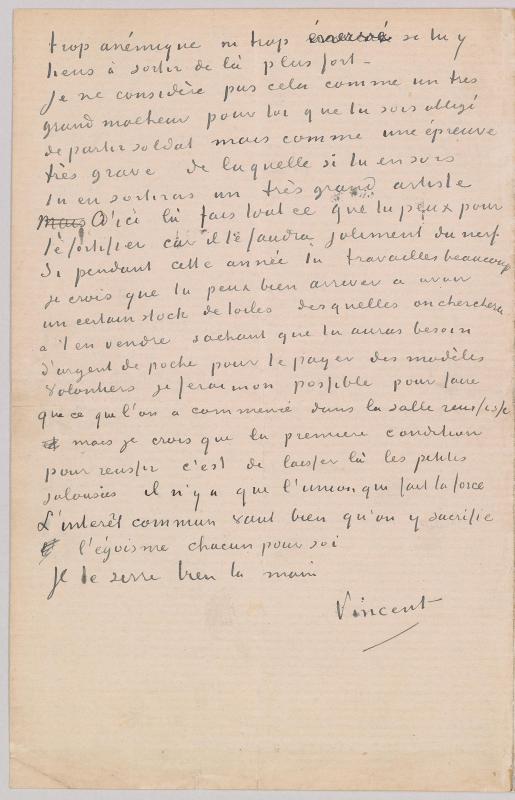 trop anémique ni trop énervé si tu y
tiens à sortir de là plus fort –
Je ne considère pas cela comme un très
grand malheur pour toi que tu sois obligé
de partir soldat mais comme une épreuve
très grave de laquelle si tu en sors
tu en sortiras un très grand artiste
Mais D'ici là fais tout ce que tu peux pour
te fortifier car il te faudra joliment du nerf
Si pendant cette année tu travailles beaucoup
je crois que tu peux bien arriver a avoir
un certain stock de toiles desquelles on cherchera
a t'en vendre sachant que tu auras besoin
d'argent de poche pour te payer des modèles
Volontiers je ferai mon possible pour faire
que ce que l'on a commencé dans la salle reussisse
mais je crois que la premiere condition
pour reussir c'est de laisser là les petites
jalousies il n'y a que l'union qui fait la force
L'interêt commun vaut bien qu'on y sacrifie
l'égoïsme chacun pour soi
Je te serre bien la main
Vincent